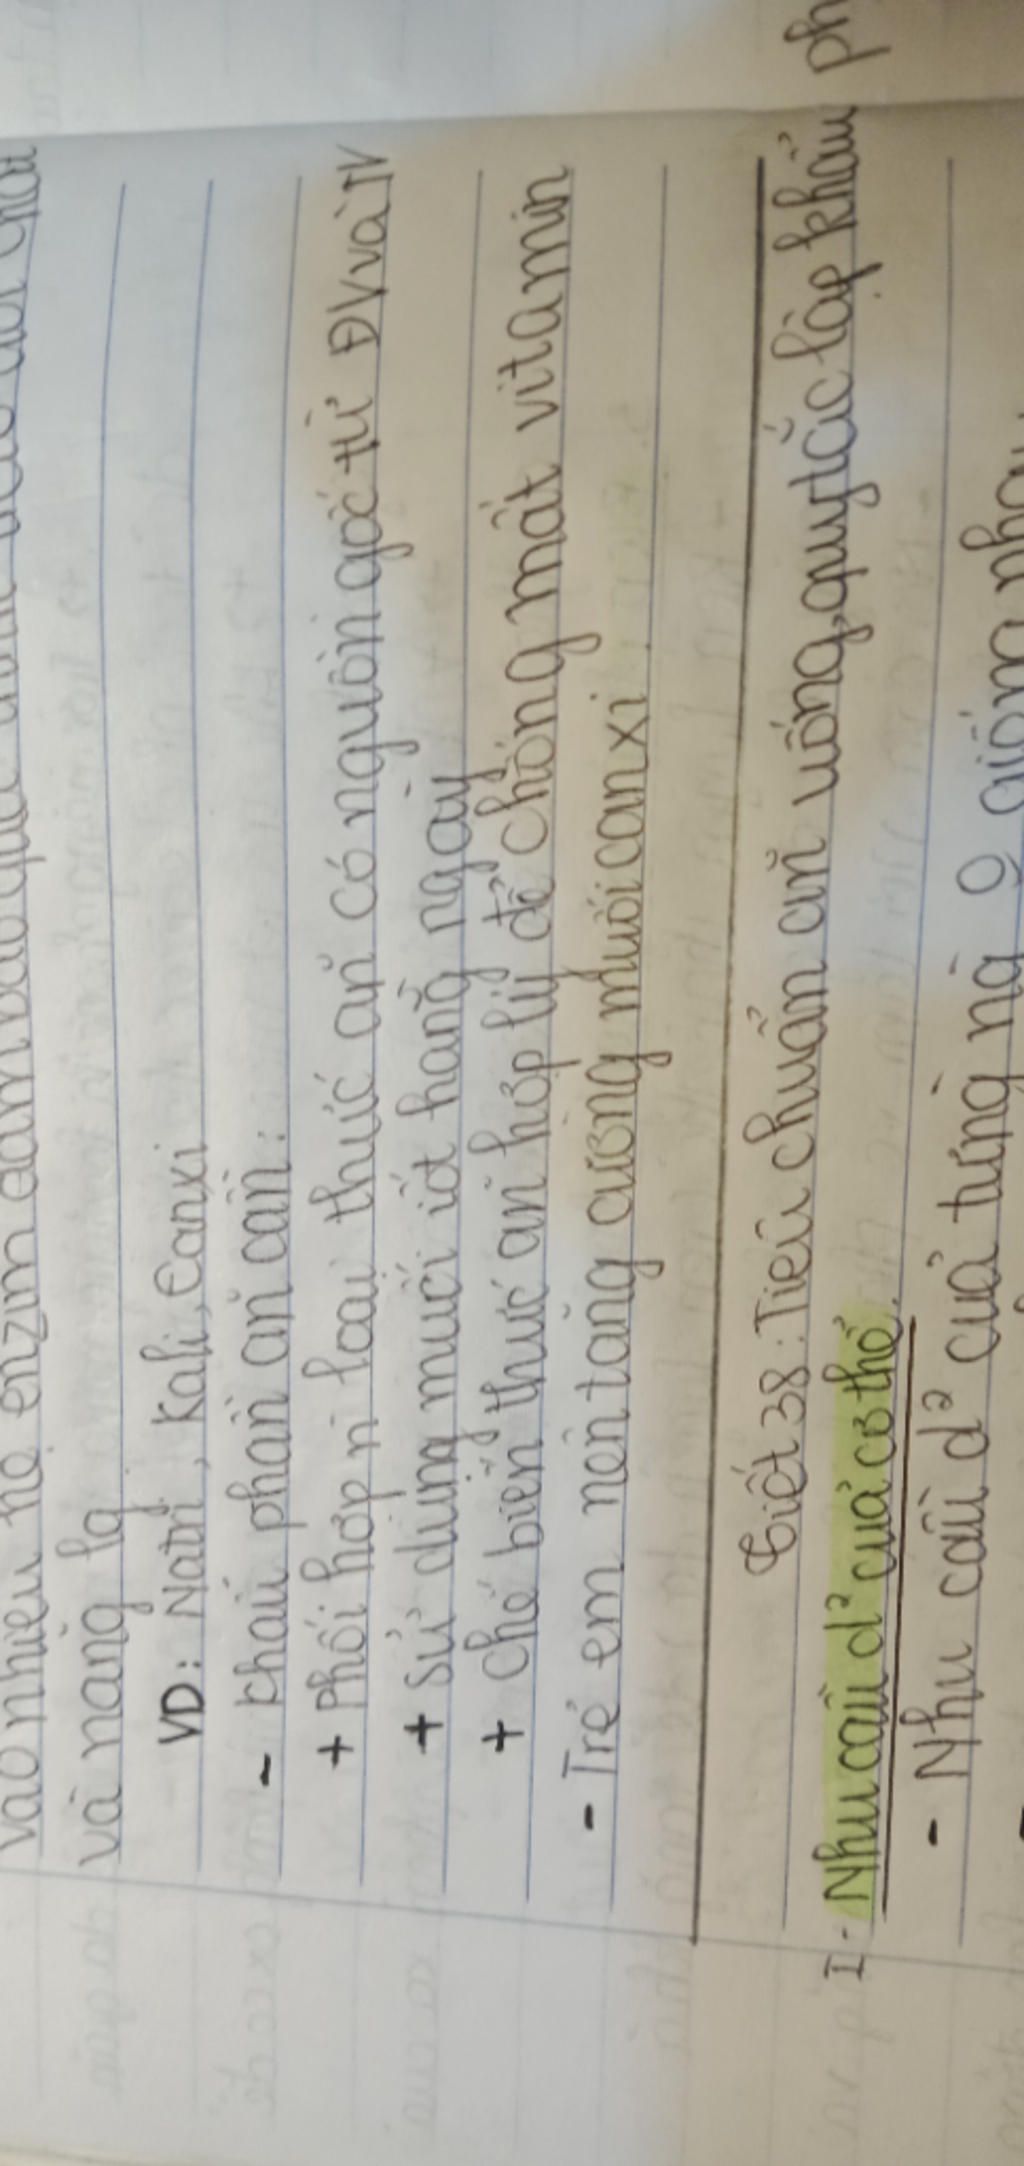 vào nhiều hệ enzim đảm bảo quá trình
và năng lg
VD: Natri, Kali, Canxi
- Khẩu phần ăn cần:
+ Phối hợp n` loại thức ăn có nguồn gốc từ ĐV và TV
+ Sử dụng muối iốt hằng ngày
+ Chế biến thức ăn hợp lý để chống mất vitamin
- Trẻ em nên tăng cường muối canxi
Tiết 38: Tiêu chuẩn ăn uống, quy tắc lập khẩu ph
I - Nhu cầu d² của cơ thể.
- Nhu cầu d² của từng ng` o giống nhau